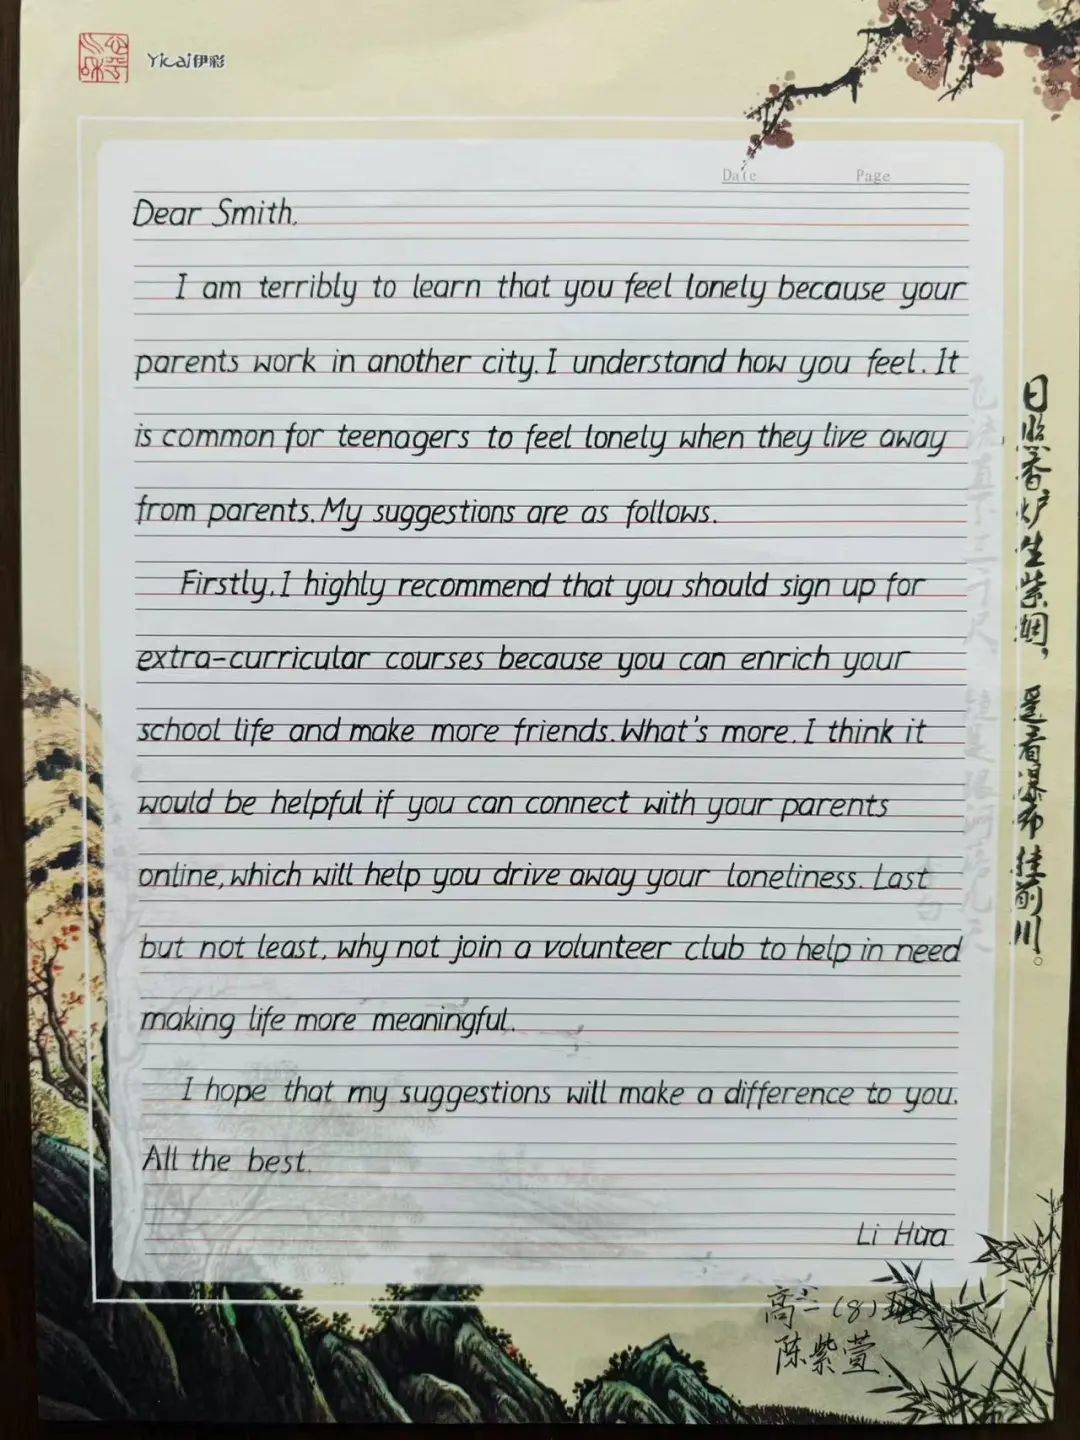 Yicai伊彩
Date Page
Dear Smith,
I am terribly to learn that you feel lonely because your
parents work in another city. I understand how you feel. It
is common for teenagers to feel lonely when they live away
from parents. My suggestions are as follows.
Firstly, I highly recommend that you should sign up for
extra-curricular courses because you can enrich your
school life and make more friends. What's more, I think it
would be helpful if you can connect with your parents
online, which will help you drive away your loneliness. Last
but not least, why not join a volunteer club to help in need
making life more meaningful.
I hope that my suggestions will make a difference to you.
All the best.
Li Hua
高二（8）班
陈紫萱
日照香炉生紫烟，遥看瀑布挂前川。